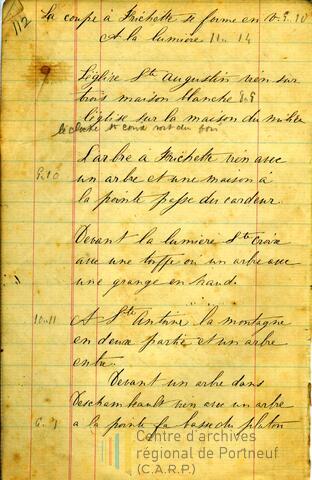 112
La coupe à Frichette se forme en v. 9.10
A la lumière 11 . 14
9
L'église Ste Augustin vien sur
trois maison blanche 8.9
l'église sur la maison du milieu
le cloche St
L'arbre a Frichette vien avec
9.10
un arbre et une maison à
la pointe passe du cardeur.
Devant la lumière Ste Croix
avec une toffe ou un arbre avec
une grange en haud.
10.11
A Ste Antoine la montagne
en deux partie et un arbre
entre.
Devant un arbre dans
Deschambault vien avec un arbre
6.7
a la pointe la basse du platon
Centre d'archives
régional de Portneuf
(C.A.R.P.)